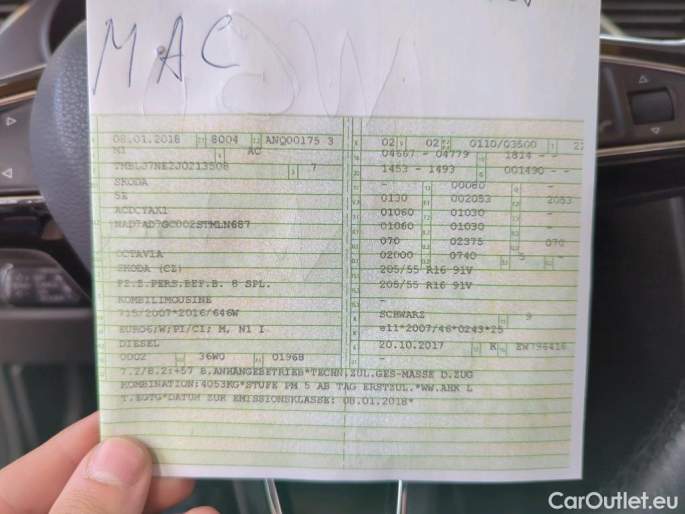 MAC
08.01.2018 8004 ANQ00175 3
M1 AC
TMBLJ7NE2J0213508 7
SKODA
5E
ACDCYAX1
NAD7AD7GC002STMLN687
OCTAVIA
SKODA (CZ)
FZ.Z.PERS.BEF.B. 8 SPL.
KOMBILIMOUSINE
715/2007*2016/646W
EURO6;W;PI/CI; M, N1 I
DIESEL
0002 36W0 01968
7.2/8.2:+57 B.ANHÄNGEBETRIEB*TECHN.ZUL.GES-MASSE D.ZUG
KOMBINATION:4053KG*STUFE PM 5 AB TAG ERSTZUL.*WW.AHK L
T.EGTG*DATUM ZUR EMISSIONSKLASSE: 08.01.2018*
02 02 0110/03500
04667 - 04779 1814 - -
1453 - 1493 001490 - -
- 00080 -
0130 002053 2053
01060 01030 -
01060 01030 -
070 02375 070
02000 0740 5 -
205/55 R16 91V
205/55 R16 91V
-
SCHWARZ 9
e11*2007/46*0243*25
20.10.2017 K EW796416
-
CarOutlet.eu